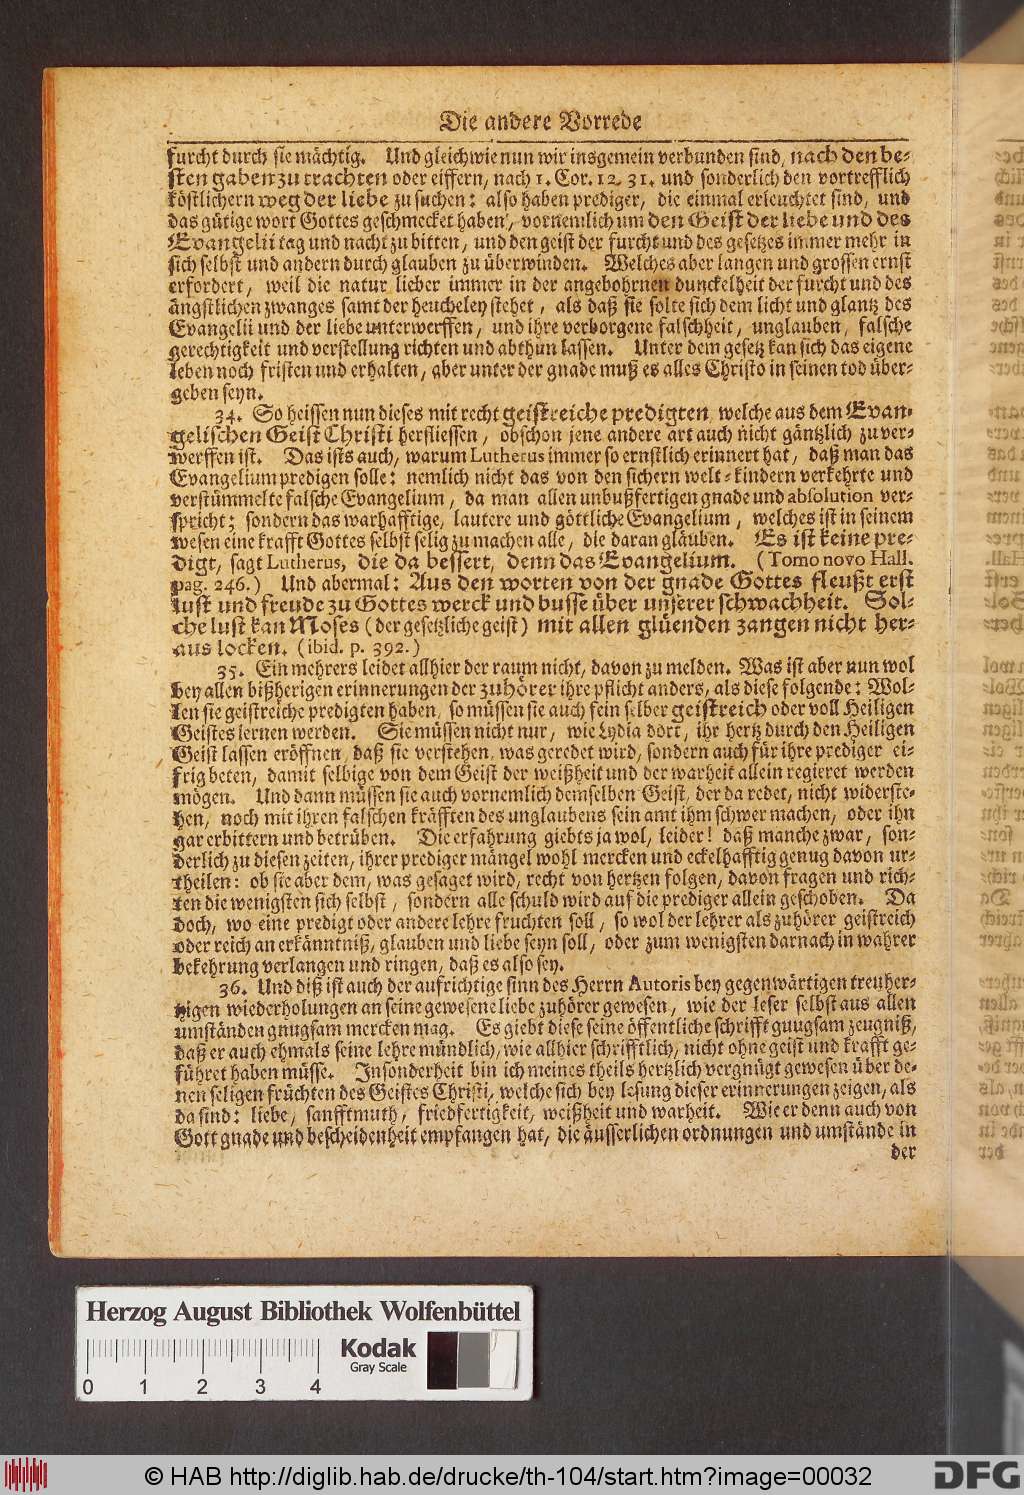 Die andere Vorrede
furcht durch sie mächtig. Und gleichwie nun wir insgemein verbunden sind, nach den be-
sten gaben zu trachten oder eiffern, nach 1. Cor. 12. 31. und sonderlich den vortrefflich
köstlichern weg der liebe zu suchen: also haben prediger, die einmal erleuchtet sind, und
das gütige wort Gottes geschmecket haben, vornemlich um den Geist der liebe und des
Evangelii tag und nacht zu bitten, und den geist der furcht und des gesetzes immer mehr in
sich selbst und andern durch glauben zu überwinden. Welches aber langen und grossen ernst
erfordert, weil die natur lieber immer in der angebohrnen dunckelheit der furcht und des
ängstlichen zwanges samt der heucheley stehet, als daß sie solte sich dem licht und glantz des
Evangelii und der liebe unterwerffen, und ihre verborgene falschheit, unglauben, falsche
gerechtigkeit und verstellung richten und abthun lassen. Unter dem gesetz kan sich das eigene
leben noch fristen und erhalten, aber unter der gnade muß es alles Christo in seinen tod über-
geben seyn.
34. So heissen nun dieses mit recht geistreiche predigten, welche aus dem Evan-
gelischen Geist Christi herfliessen, obschon jene andere art auch nicht gäntzlich zu ver-
werffen ist. Das ists auch, warum Lutherus immer so ernstlich erinnert hat, daß man das
Evangelium predigen solle: nemlich nicht das von den sichern welt-kindern verkehrte und
verstümmelte falsche Evangelium, da man allen unbußfertigen gnade und absolution ver-
spricht; sondern das warhafftige, lautere und göttliche Evangelium, welches ist in seinem
wesen eine krafft Gottes selbst selig zu machen alle, die daran gläuben. Es ist keine pre-
digt, sagt Lutherus, die da bessert, denn das Evangelium. (Tomo novo Hall.
pag. 246.) Und abermal: Aus den worten von der gnade Gottes fleußt erst
lust und freude zu Gottes werck und busse über unserer schwachheit. Sol-
che lust kan Moses (der gesetzliche geist) mit allen glüenden zangen nicht her-
aus locken. (ibid. p. 392.)
35. Ein mehrers leidet allhier der raum nicht, davon zu melden. Was ist aber nun wol
bey allen bißherigen erinnerungen der zuhörer ihre pflicht anders, als diese folgende: Wol-
len sie geistreiche predigten haben, so müssen sie auch fein selber geistreich oder voll Heiligen
Geistes lernen werden. Sie müssen nicht nur, wie Lydia dort, ihr hertz durch den Heiligen
Geist lassen eröffnen, daß sie verstehen, was geredet wird, sondern auch für ihre prediger ei-
frig beten, damit selbige von dem Geist der weißheit und der warheit allein regieret werden
mögen. Und dann müssen sie auch vornemlich demselben Geist, der da redet, nicht widerste-
hen, noch mit ihren falschen kräfften des unglaubens sein amt ihm schwer machen, oder ihn
gar erbittern und betrüben. Die erfahrung giebts ja wol, leider! daß manche zwar, son-
derlich zu diesen zeiten, ihrer prediger mängel wohl mercken und eckelhafftig genug davon ur-
theilen: ob sie aber dem, was gesaget wird, recht von hertzen folgen, davon fragen und rich-
ten die wenigsten sich selbst, sondern alle schuld wird auf die prediger allein geschoben. Da
doch, wo eine predigt oder andere lehre fruchten soll, so wol der lehrer als zuhörer geistreich
oder reich an erkänntniß, glauben und liebe seyn soll, oder zum wenigsten darnach in wahrer
bekehrung verlangen und ringen, daß es also sey.
36. Und diß ist auch der aufrichtige sinn des Herrn Autoris bey gegenwärtigen treuher-
tzigen wiederholungen an seine gewesene liebe zuhörer gewesen, wie der leser selbst aus allen
umständen gnugsam mercken mag. Es giebt diese seine öffentliche schrifft gnugsam zeugniß,
daß er auch ehmals seine lehre mündlich, wie allhier schrifftlich, nicht ohne geist und krafft ge-
führet haben müsse. Insonderheit bin ich meines theils hertzlich vergnügt gewesen über de-
nen seligen früchten des Geistes Christi, welche sich bey lesung dieser erinnerungen zeigen, als
da sind: liebe, sanfftmuth, friedfertigkeit, weißheit und warheit. Wie er denn auch von
Gott gnade und bescheidenheit empfangen hat, die äusserlichen ordnungen und umstände in
der
Herzog August Bibliothek Wolfenbüttel
Kodak
Gray Scale
0 1 2 3 4
© HAB http://diglib.hab.de/drucke/th-104/start.htm?image=00032
DFG